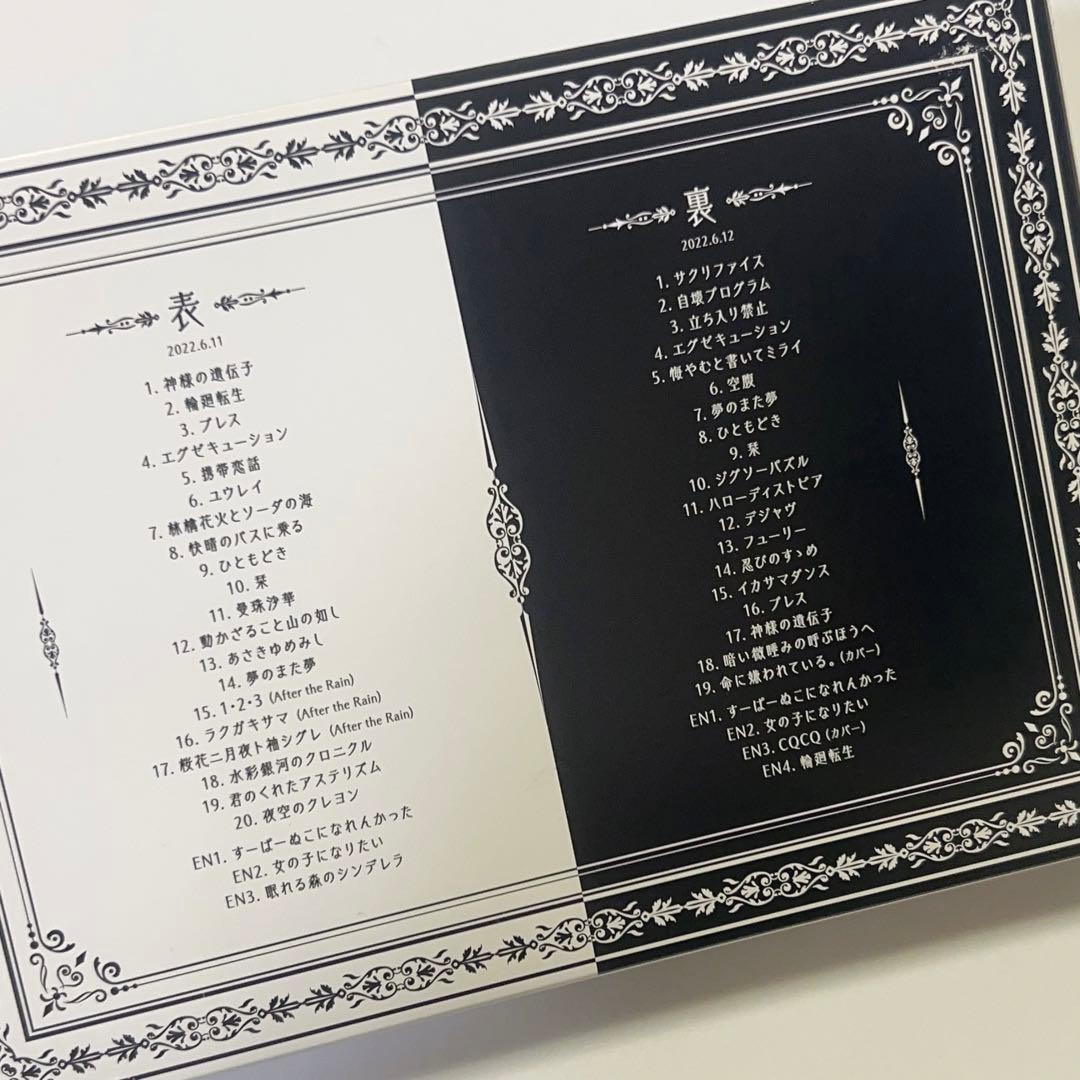 表
2022.6.11
1. 神様の遺伝子
2. 輪廻転生
3. ブレス
4. エグゼキューション
5. 携帯恋話
6. ユウレイ
7. 林檎花火とソーダの海
8. 快晴のバスに乗る
9. ひともどき
10. 栞
11. 曼珠沙華
12. 動かざること山の如し
13. あさきゆめみし
14. 夢のまた夢
15. 1・2・3 (After the Rain)
16. ラクガキサマ (After the Rain)
17. 桜花ニ月夜ト袖シグレ (After the Rain)
18. 水彩銀河のクロニクル
19. 君のくれたアステリズム
20. 夜空のクレヨン
EN1. すーぱーぬこになれんかった
EN2. 女の子になりたい
EN3. 眠れる森のシンデレラ
裏
2022.6.12
1. サクリファイス
2. 自壊プログラム
3. 立ち入り禁止
4. エグゼキューション
5. 悔やむと書いてミライ
6. 空腹
7. 夢のまた夢
8. ひともどき
9. 栞
10. ジグソーパズル
11. ハローディストピア
12. デジャヴ
13. フューリー
14. 忍びのすゝめ
15. イカサマダンス
16. ブレス
17. 神様の遺伝子
18. 暗い微睡みの呼ぶほうへ
19. 命に嫌われている。(カバー)
EN1. すーぱーぬこになれんかった
EN2. 女の子になりたい
EN3. CQCQ (カバー)
EN4. 輪廻転生